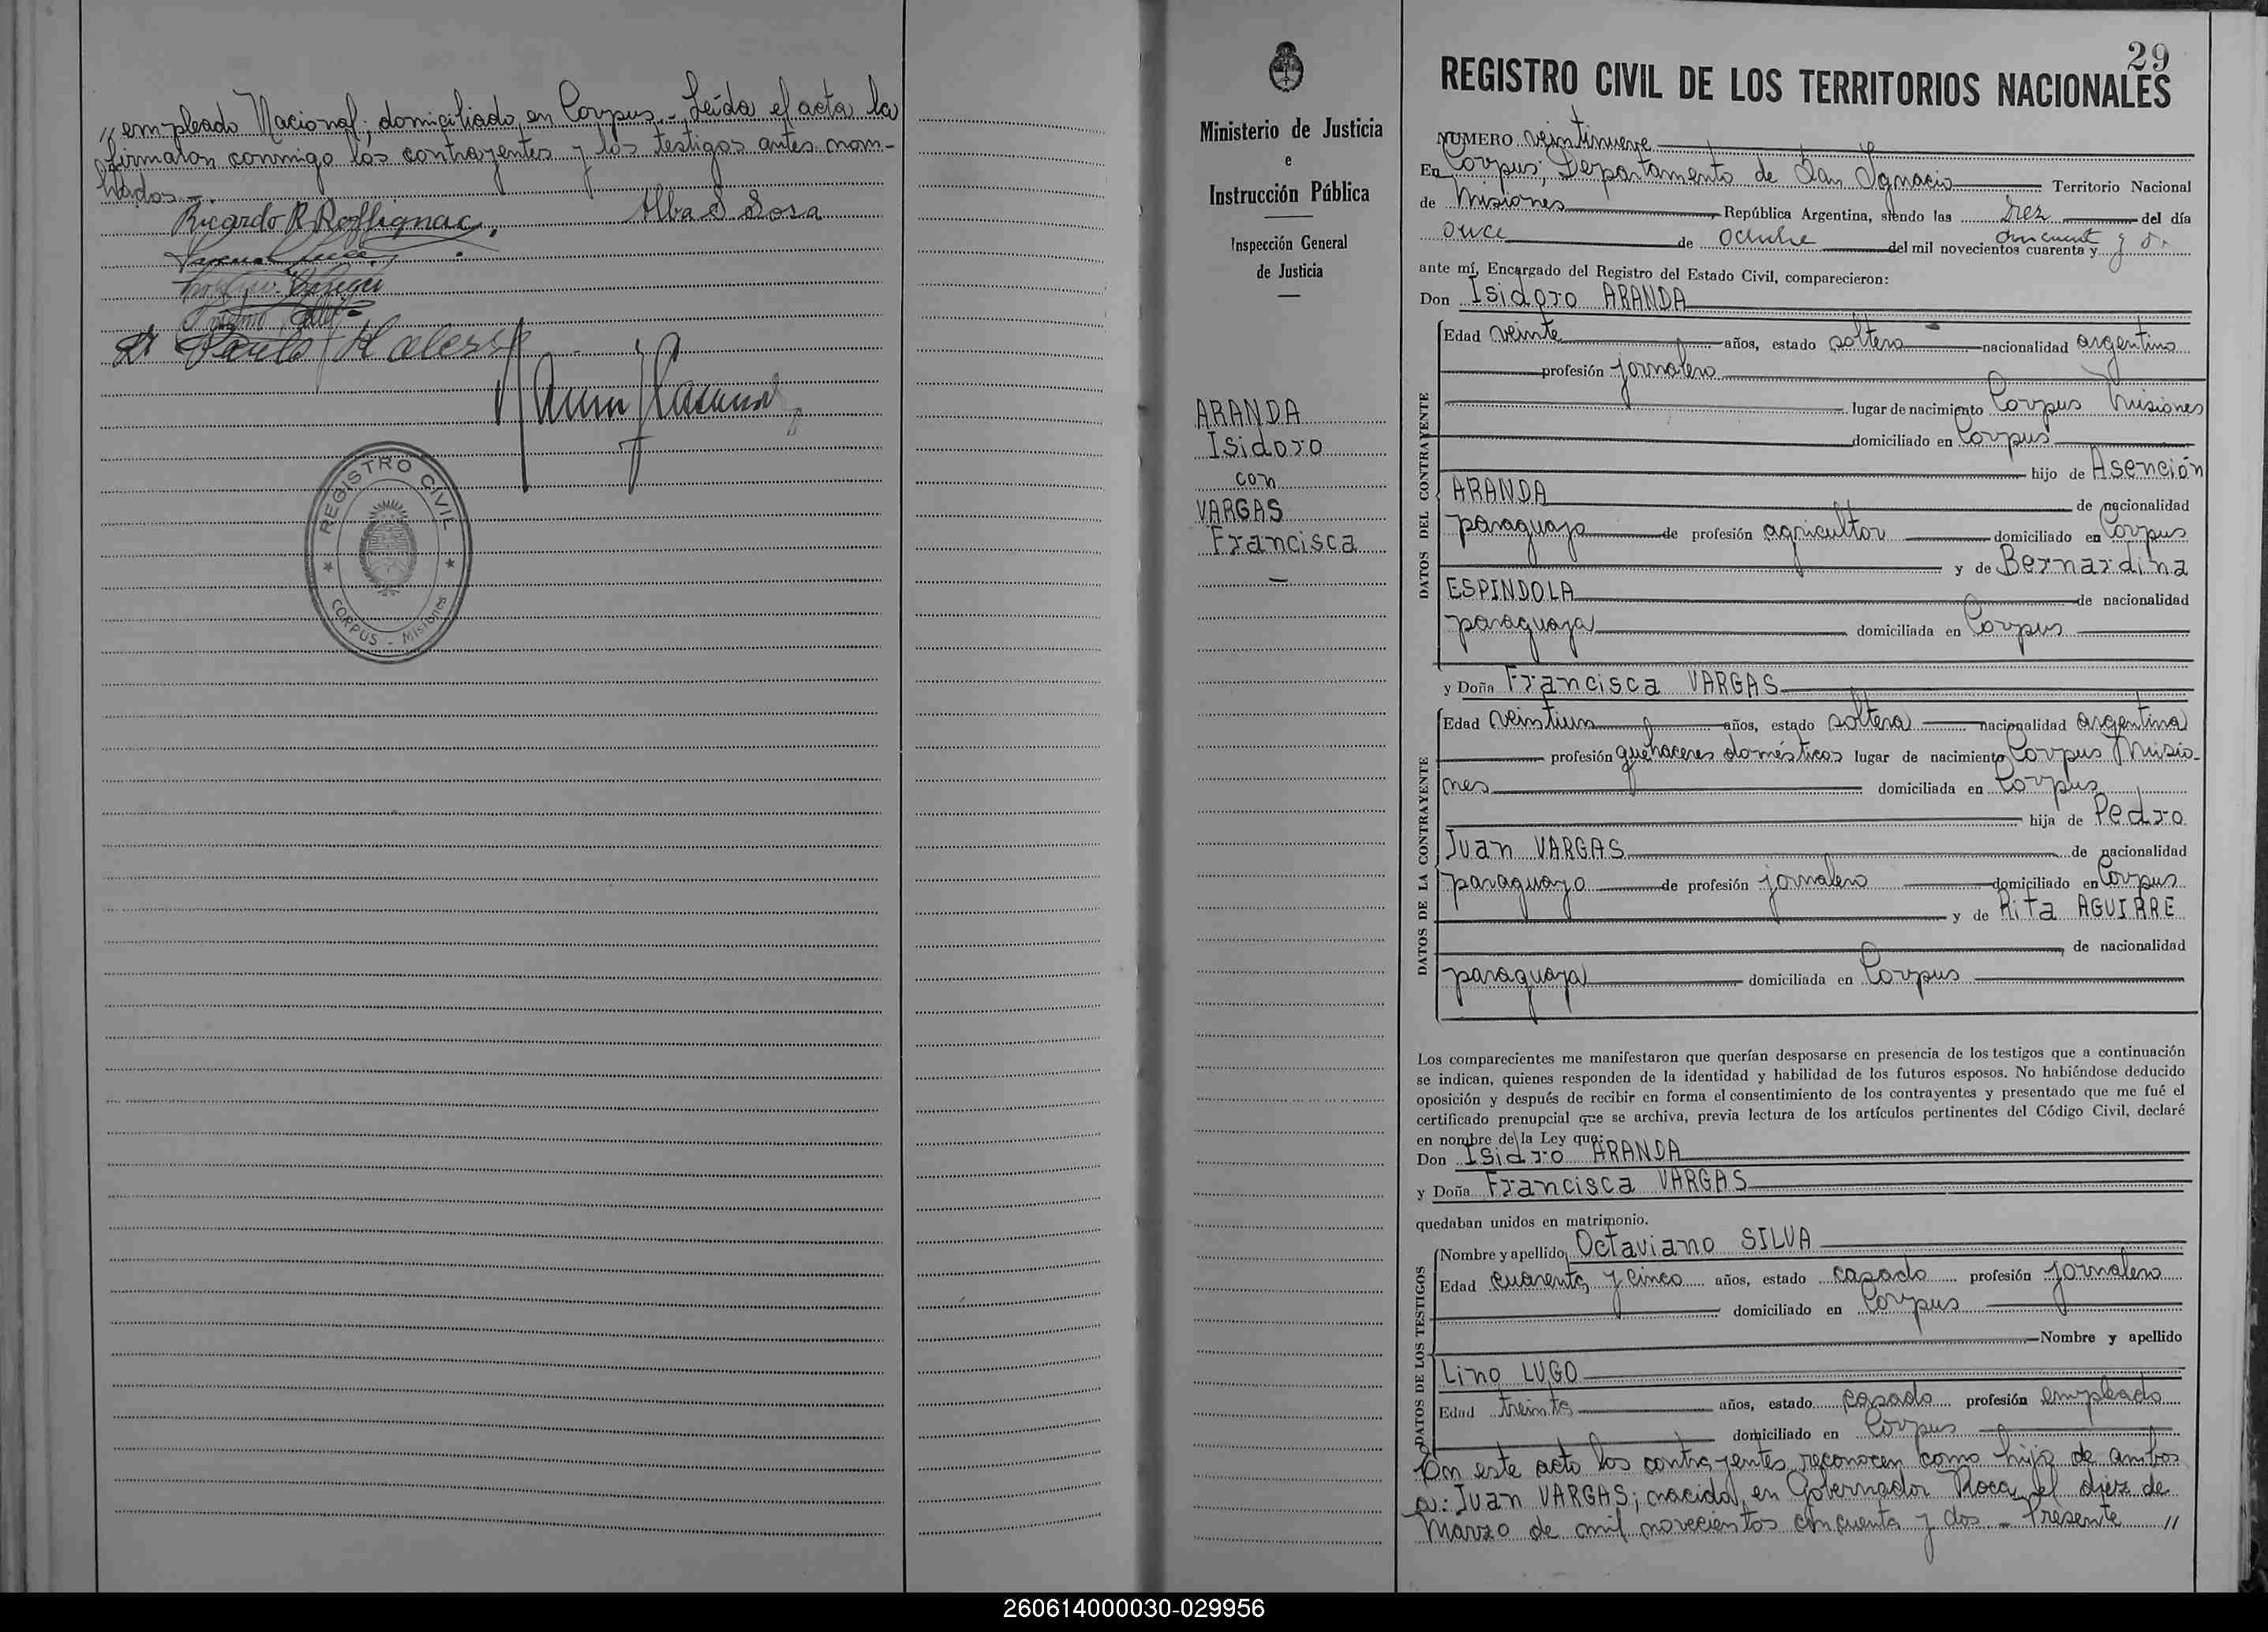 // empleado Nacional; domiciliado en Corpus.- Leída el acta la
firmaron conmigo los contrayentes y los testigos antes nom-
brados.-
Ricardo R Roffignac, Alba S Sosa
REGISTRO CIVIL
CORPUS - Misiones
Ministerio de Justicia
e
Instrucción Pública
Inspección General
de Justicia
ARANDA
Isidoro
con
VARGAS
Francisca
29
REGISTRO CIVIL DE LOS TERRITORIOS NACIONALES
NUMERO veintinueve
En Corpus; Departamento de San Ignacio Territorio Nacional
de Misiones República Argentina, siendo las diez del día
once de Octubre del mil novecientos cuarenta y
ante mí, Encargado del Registro del Estado Civil, comparecieron:
Don Isidoro ARANDA
DATOS DEL CONTRAYENTE
Edad veinte años, estado soltero nacionalidad argentino
profesión jornalero
lugar de nacimiento Corpus Misiones
domiciliado en Corpus
hijo de Asención
ARANDA de nacionalidad
paraguayo de profesión agricultor domiciliado en Corpus
y de Bernardina
ESPINDOLA de nacionalidad
paraguaya domiciliada en Corpus
y Doña Francisca VARGAS
DATOS DE LA CONTRAYENTE
Edad veintiun años, estado soltera nacionalidad argentina
profesión quehaceres domésticos lugar de nacimiento Corpus Misio-
nes domiciliada en Corpus
hija de Pedro
Juan VARGAS de nacionalidad
paraguayo de profesión jornalero domiciliado en Corpus
y de Rita AGUIRRE
de nacionalidad
paraguaya domiciliada en Corpus
Los comparecientes me manifestaron que querían desposarse en presencia de los testigos que a continuación
se indican, quienes responden de la identidad y habilidad de los futuros esposos. No habiéndose deducido
oposición y después de recibir en forma el consentimiento de los contrayentes y presentado que me fué el
certificado prenupcial que se archiva, previa lectura de los artículos pertinentes del Código Civil, declaré
en nombre de la Ley que:
Don Isidro ARANDA
y Doña Francisca VARGAS
quedaban unidos en matrimonio.
DATOS DE LOS TESTIGOS
Nombre y apellido Octaviano SILVA
Edad cuarenta y cinco años, estado casado profesión jornalero
domiciliado en Corpus
Nombre y apellido
Lino LUGO
Edad treinta años, estado casado profesión empleado
domiciliado en Corpus
En este acto los contrayentes reconocen como hijo de ambos
a: Juan VARGAS; nacido en Gobernador Roca, el diez de
Marzo de mil novecientos cincuenta y dos - Presente //
260614000030-029956